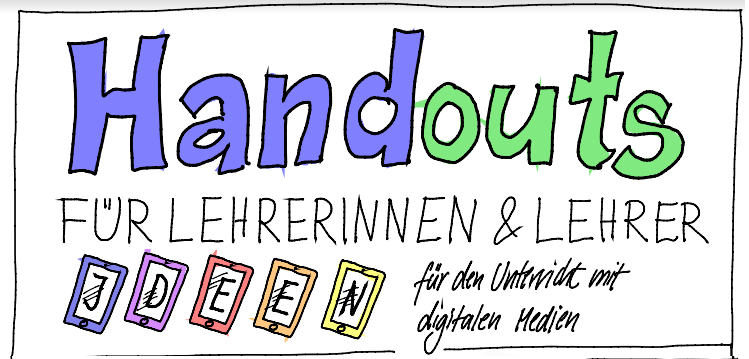 Handouts
FÜR LEHRERINNEN & LEHRER
IDEEN
für den Unterricht mit
digitalen Medien